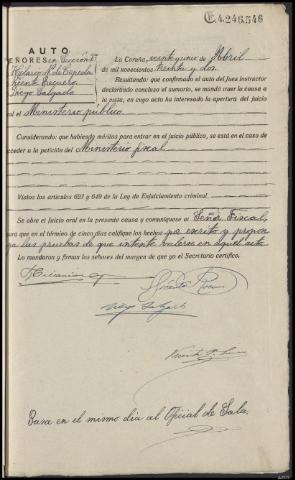 C.4.246.546
AUTO
SEÑORES en Sección
Hilario N. de Cepeda
Vicente
Diego Salgado
La Coruña veintiyuno de Abril
de mil novecientos treinta y dos
Resultando: que confirmado el auto del Juez instructor
declarando concluso el sumario, se mandó traer la causa a
la vista, en cuyo acto ha interesado la apertura del juicio
oral el Ministerio público
Considerando: que habiendo méritos para entrar en el juicio público, se está en el caso de
acceder a la petición del Ministerio fiscal
Vistos los artículos 623 y 649 de la Ley de Enjuiciamiento criminal
Se abre el juicio oral en la presente causa y comuníquese al Señor Fiscal,
para que en el término de cinco días califique los hechos por escrito y propon
ga las pruebas de que intente valerse en aquel acto
Lo mandaron y firman los señores del margen de que yo el Secretario certifico.
Diego Salgado
Pasa en el mismo día al Oficial de Sala.